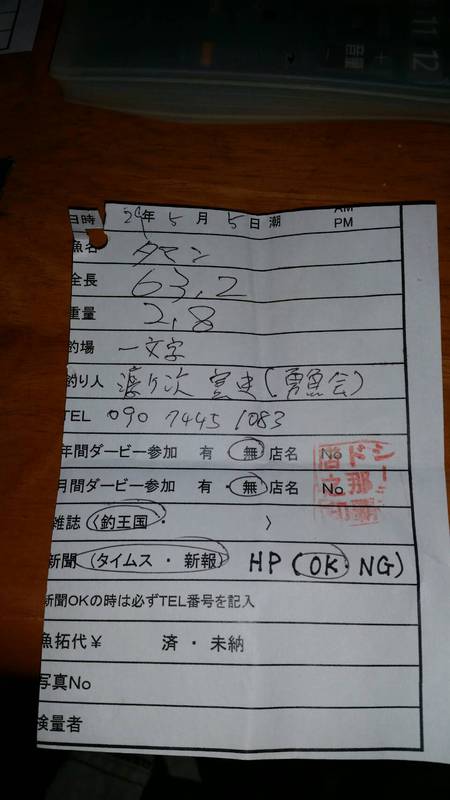 11 12
日時 29年 5月 5日 潮 AM PM
魚名 タマン
全長 63,2
重量 2,8
釣場 一文字
釣り人 渡り次 憲史(勇魚会)
TEL 090 7445 1083
年間ダービー参加 有 無 店名 No
月間ダービー参加 有・無 店名 No
雑誌〈釣王国・ 〉
新聞(タイムス・新報) HP(OK・NG)
新聞OKの時は必ずTEL番号を記入
魚拓代¥ 済・未納
写真No
検量者